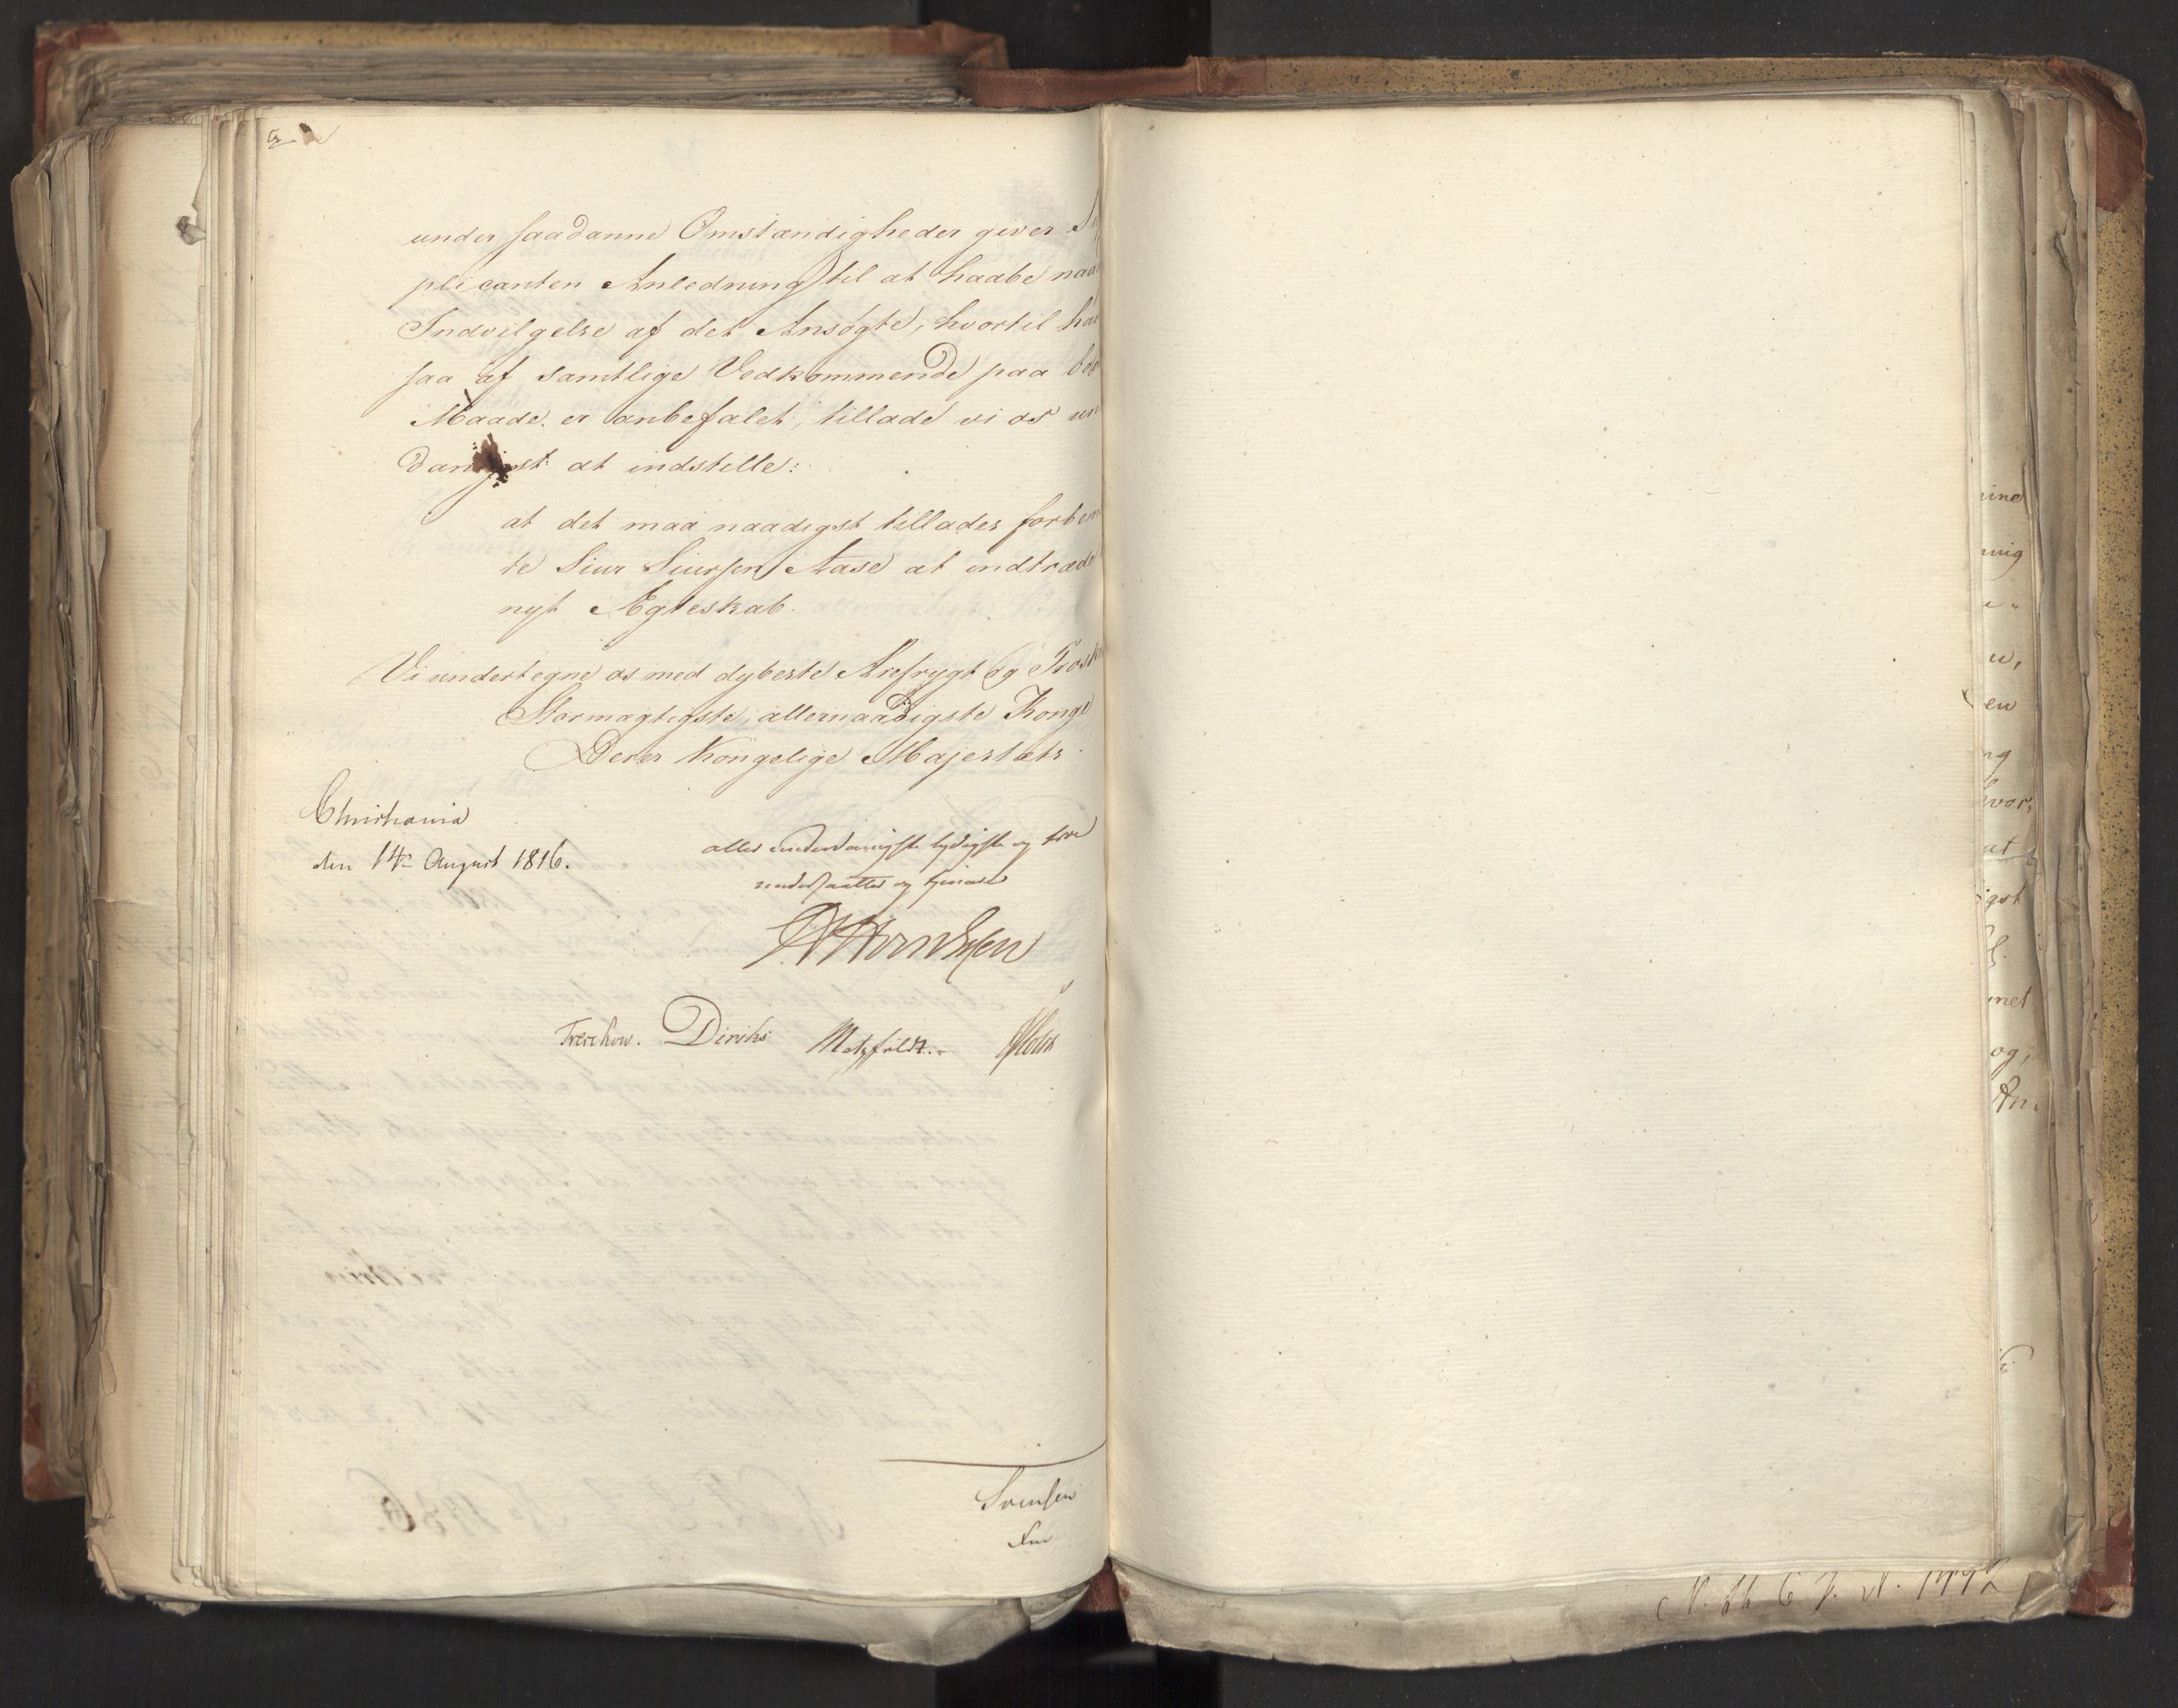 under saadanne Omstændigheder giver Su
plicanten Anledning til at haabe naa
Indvilgelse af det Ansøgte, hvortil ha
saa af samtlige Vedkommende paa be
Maade er anbefalet, tillade vi os un
danigst at indstille:
at det maa naadigst tillades forbem
te Siur Siursen Aase at indtræde
nyt Ægteskab.
Vi undertegne os med dybeste Ærefrygt og Trosk
Stormægtigste, allernaadigste Konge
Deres Kongelige Majestæts
Christiania
den 14de August 1816.
allerunderdanigste lydigste og troe
undersaatter og tjenere
Treschow. Diriks Motzfeldt.
Svensen
ine
ning
u,
en
ng
hvor,
at
igst
net
og,
An.